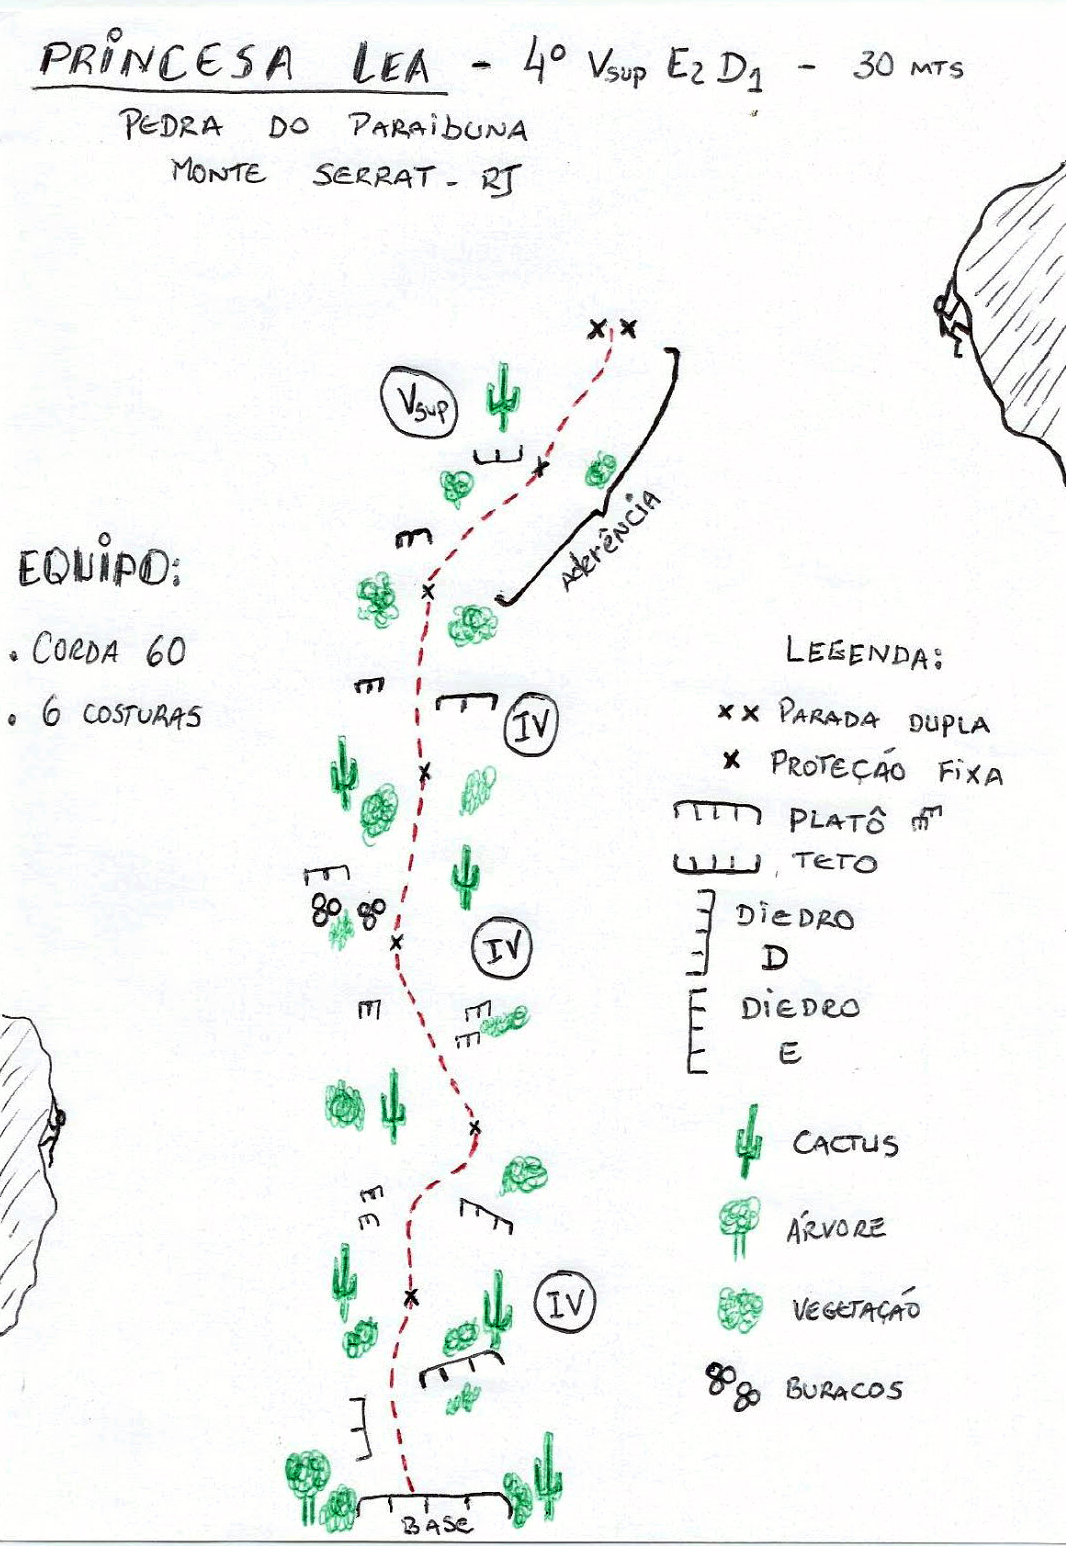 PRINCESA LEA - 4º Vsup E2 D1 - 30 MTS
PEDRA DO PARAIBUNA
MONTE SERRAT - RJ
Vsup
Aderência
EQUIPO:
. CORDA 60
. 6 COSTURAS
IV
IV
IV
BASE
LEGENDA:
x x PARADA DUPLA
x PROTEÇÃO FIXA
PLATÔ
TETO
DIEDRO
D
DIEDRO
E
CACTUS
ÁRVORE
VEGETAÇÃO
BURACOS